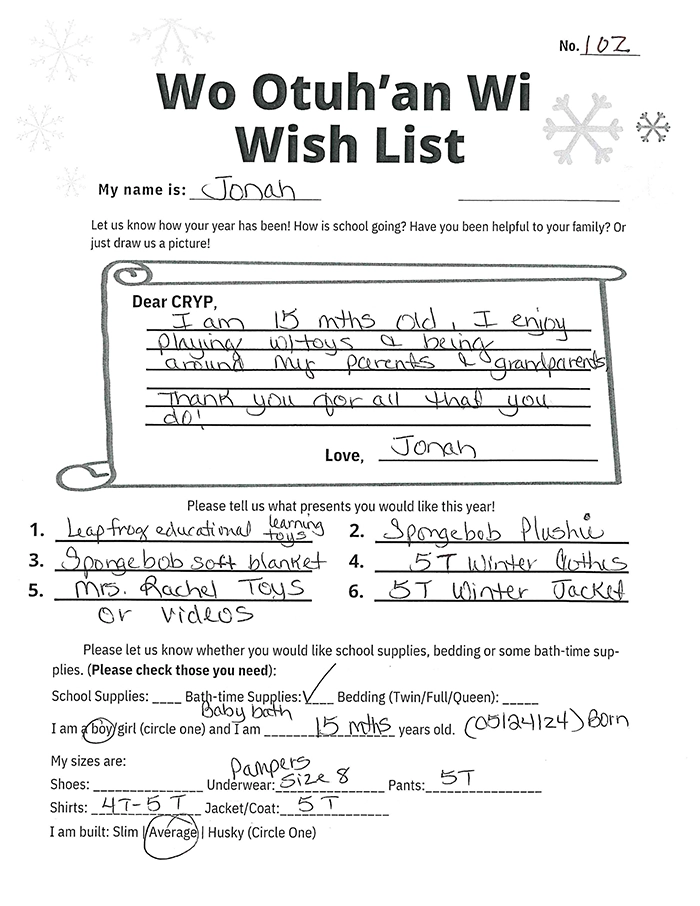 No. 102
Wo Otuh'an Wi
Wish List
My name is: Jonah
Let us know how your year has been! How is school going? Have you been helpful to your family? Or
just draw us a picture!
Dear CRYP,
I am 15 mths old, I enjoy
playing w/toys & being
around my parents & grandparents,
Thank you for all that you
do!
Love, Jonah
Please tell us what presents you would like this year!
1. Leapfrog educational learning toys 2. Spongebob Plushie
3. Spongebob soft blanket 4. 5T Winter Clothes
5. Mrs. Rachel Toys 6. 5T Winter Jacket
or videos
Please let us know whether you would like school supplies, bedding or some bath-time sup-
plies. (Please check those you need):
School Supplies: ____ Bath-time Supplies: ✓ Bedding (Twin/Full/Queen): _____
Baby bath
I am a boy/girl (circle one) and I am 15 mths years old. (05/24/24) Born
My sizes are:
Pampers
Shoes: ______________ Underwear: Size 8 Pants: 5T
Shirts: 4T-5T Jacket/Coat: 5T
I am built: Slim | Average | Husky (Circle One)